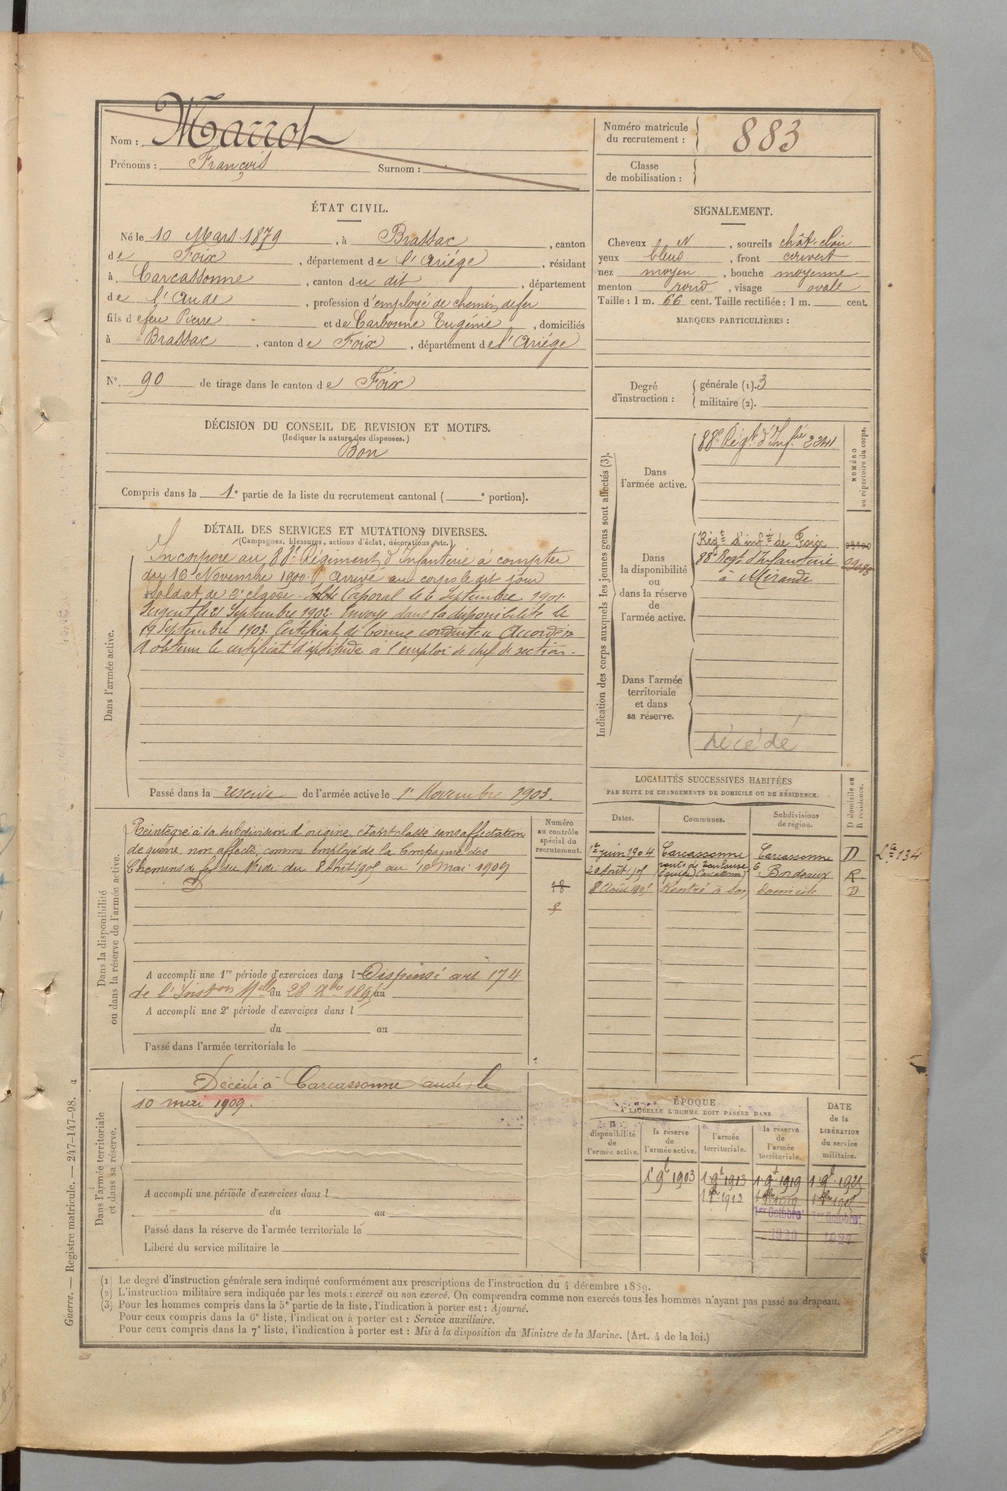 Nom : Marrot
Prénoms : François Surnom :
Numéro matricule du recrutement : 883
Classe de mobilisation :
ÉTAT CIVIL.
Né le 10 Mars 1879, à Brassac, canton
de Foix, département de l'Ariège, résidant
à Carcassonne, canton du dit, département
de l'Aude, profession d'employé de chemin de fer
fils de feu Pierre et de Carbonne Eugénie, domiciliés
à Brassac, canton de Foix, département de l'Ariège
N° 90 de tirage dans le canton de Foix
SIGNALEMENT.
Cheveux N, sourcils chât. clair
yeux bleus, front couvert
nez moyen, bouche moyenne
menton rond, visage ovale
Taille : 1 m. 66 cent. Taille rectifiée : 1 m. cent.
MARQUES PARTICULIÈRES :
Degré d'instruction : générale (1). 3
militaire (2).
DÉCISION DU CONSEIL DE REVISION ET MOTIFS.
(Indiquer la nature des dispenses.)
Bon
Compris dans la 1e partie de la liste du recrutement cantonal ( e portion).
DÉTAIL DES SERVICES ET MUTATIONS DIVERSES.
(Campagnes, blessures, actions d'éclat, décorations, etc.)
Dans l'armée active.
Incorporé au 88e Régiment d'Infanterie à compter
du 16 Novembre 1900. Arrivé au corps le dit jour
soldat de 2e classe. Caporal le 6 Septembre 1901.
Sergent le 21 Septembre 1902. Envoyé dans la disponibilité le
19 Septembre 1903. Certificat de bonne conduite Accordé.
A obtenu le certificat d'aptitude à l'emploi de chef de section.
Passé dans la réserve de l'armée active le 1er Novembre 1903.
Indication des corps auxquels les jeunes gens sont affectés (3).
NUMÉRO au répertoire du corps.
Dans l'armée active.
88e Régt d'Infie 2341
Dans la disponibilité ou dans la réserve de l'armée active.
Régt d'infie de Foix
88e Régt d'Infanterie
à Mirande
Dans l'armée territoriale et dans sa réserve.
décédé
LOCALITÉS SUCCESSIVES HABITÉES
PAR SUITE DE CHANGEMENTS DE DOMICILE OU DE RÉSIDENCE.
Dates. Communes. Subdivisions de région. D domicile ou R résidence.
1er juin 1904 Carcassonne Carcassonne D
Bordeaux R
8 Août 1905 Rentré à son domicile D
134
Dans la disponibilité ou dans la réserve de l'armée active.
Numéro au contrôle spécial du recrutement.
Réintégré à la subdivision d'origine, étant classé sans affectation
de guerre, non affecté, comme employé de la Compagnie des
Chemins de fer du Midi du 8 Août 1905 au 10 Mai 1909
A accompli une 1re période d'exercices dans l Dispensé art. 174
de l'Inston Mlle du 28 Xbre 189 au
A accompli une 2e période d'exercices dans l
du au
Passé dans l'armée territoriale le
Dans l'armée territoriale et dans sa réserve.
Décédé à Carcassonne Aude le
10 mai 1909.
A accompli une période d'exercices dans l
du au
Passé dans la réserve de l'armée territoriale le
Libéré du service militaire le
ÉPOQUE
À LAQUELLE L'HOMME DOIT PASSER DANS
la disponibilité de l'armée active. la réserve de l'armée active. l'armée territoriale. la réserve de l'armée territoriale. DATE de la LIBÉRATION du service militaire.
1 9bre 1903 1 9bre 1913 1 9bre 1919
1er Octobre 1er Octobre
(1) Le degré d'instruction générale sera indiqué conformément aux prescriptions de l'instruction du 4 décembre 1889.
(2) L'instruction militaire sera indiquée par les mots : exercé ou non exercé. On comprendra comme non exercés tous les hommes n'ayant pas passé au drapeau.
(3) Pour les hommes compris dans la 5e partie de la liste, l'indication à porter est : Ajourné.
Pour ceux compris dans la 6e liste, l'indication à porter est : Service auxiliaire.
Pour ceux compris dans la 7e liste, l'indication à porter est : Mis à la disposition du Ministre de la Marine. (Art. 4 de la loi.)
Guerre. — Registre matricule. — 247-147-98.